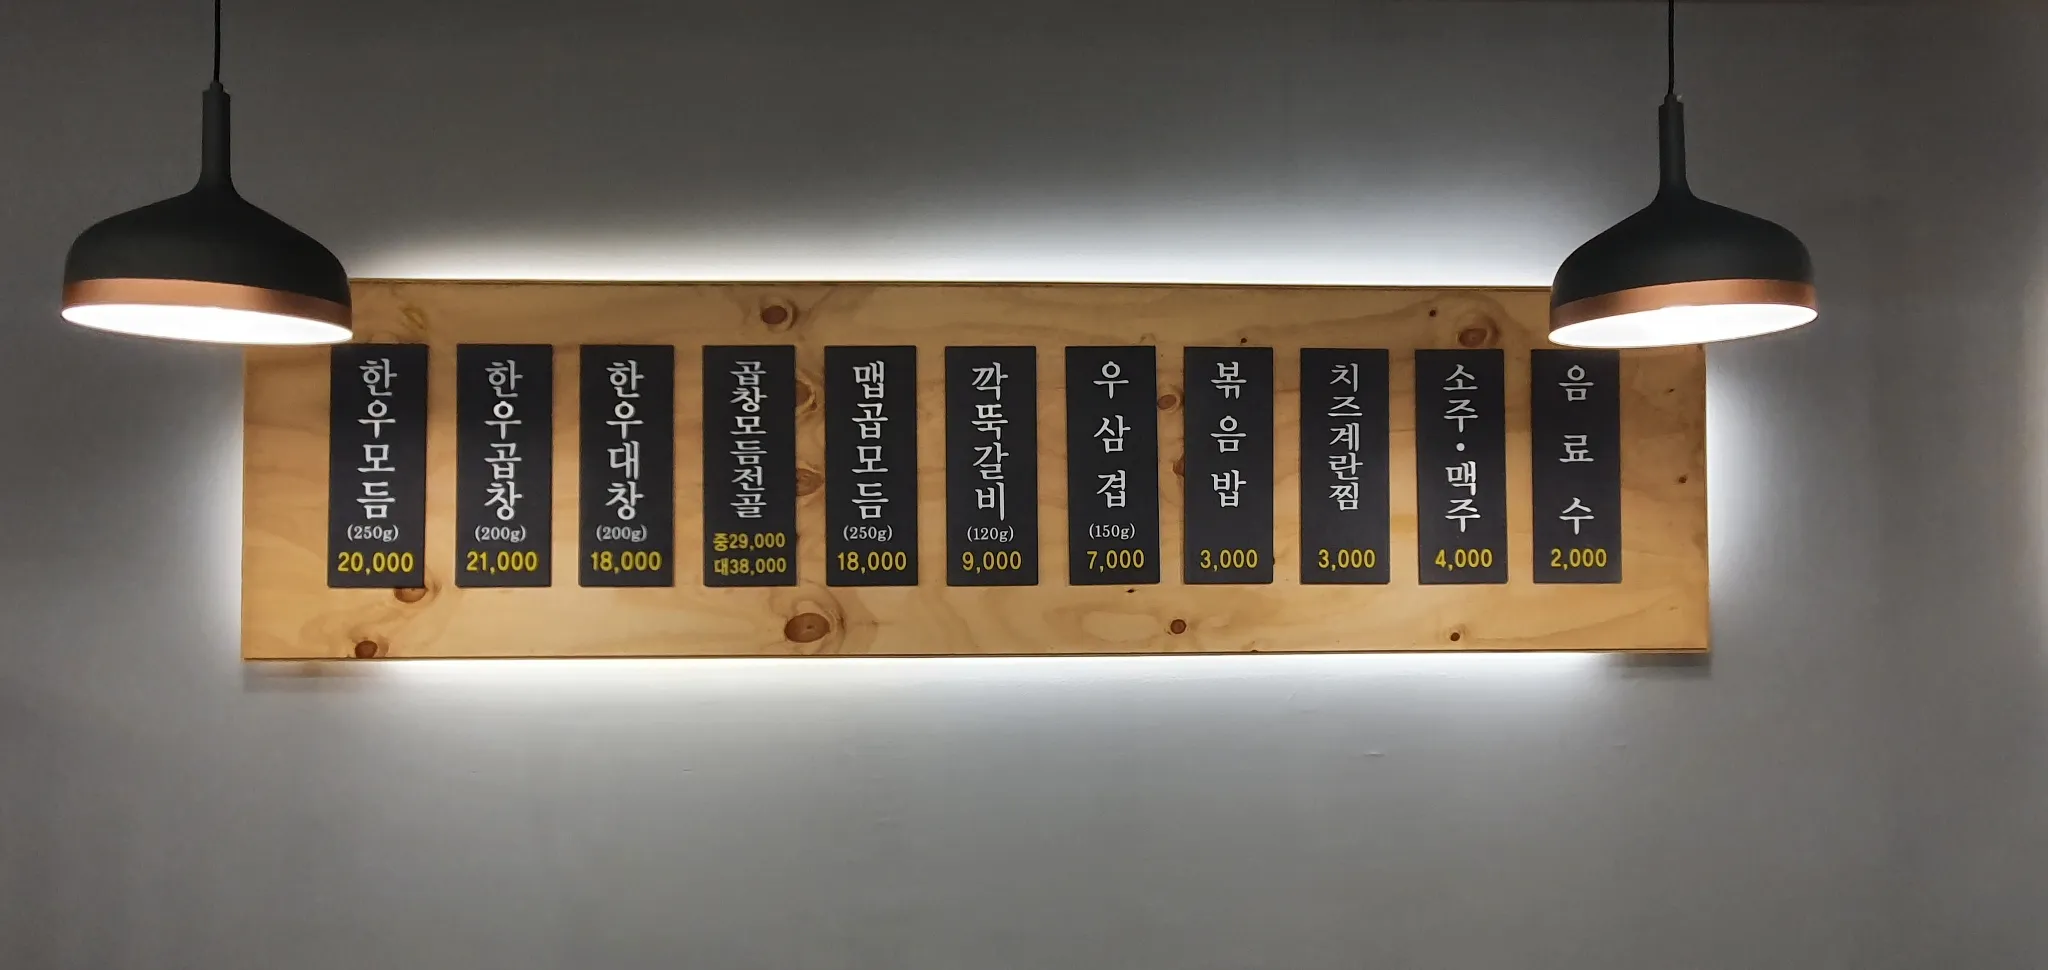 한우모듬
(250g)
20,000
한우곱창
(200g)
21,000
한우대창
(200g)
18,000
곱창모듬전골
중29,000
대38,000
맵곱모듬
(250g)
18,000
깍뚝갈비
(120g)
9,000
우삼겹
(150g)
7,000
볶음밥
3,000
치즈계란찜
3,000
소주·맥주
4,000
음료수
2,000